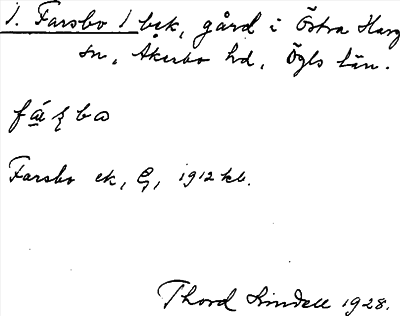 1. Farsbo 1 bek, gård i Östra Harg
sn, Åkerbo hd, Ögls län.
Farsbo ek, G, 1912 kb.
Thord Lindell 1928.